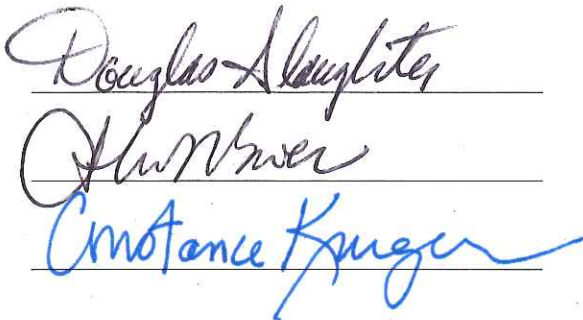 Douglas Slaughter
Constance Kruger